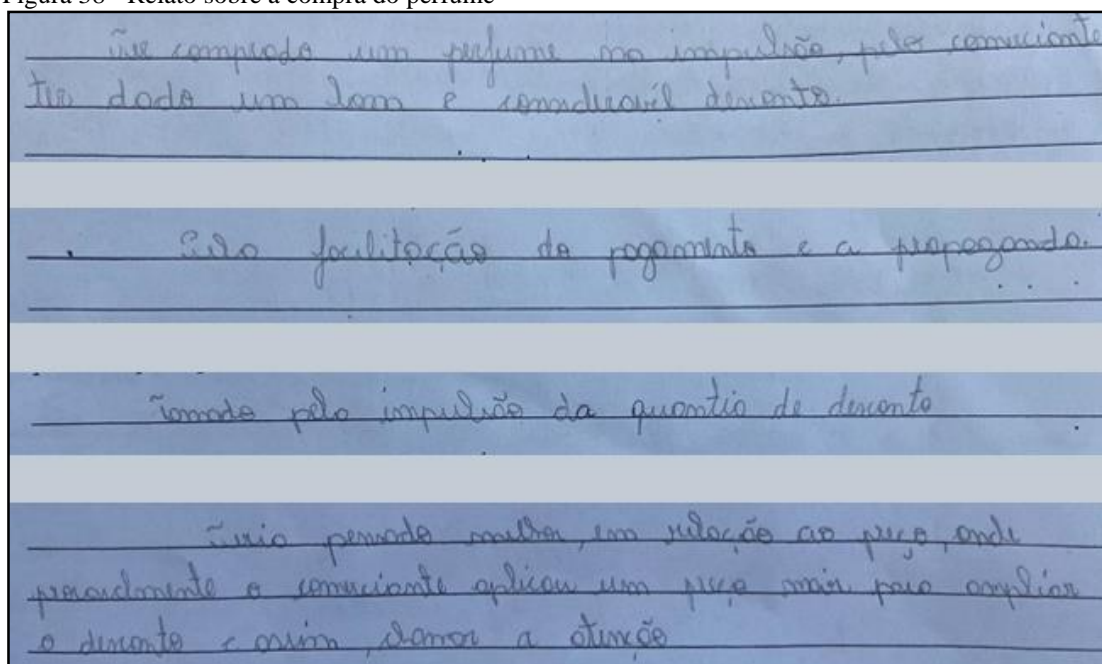 Figura 38 - Relato sobre a compra do perfume
Ter comprado um perfume no impulsão, pelo comerciante
ter dado um bom e consideravél desconto.
Pela facilitação do pagamento e a propaganda.
Tomado pelo impulsão da quantia de desconto
Teria pensado melhor, em relação ao preço, onde
provavelmente o comerciante aplicou um preço maior para ampliar
o desconto e assim, chamar a atenção